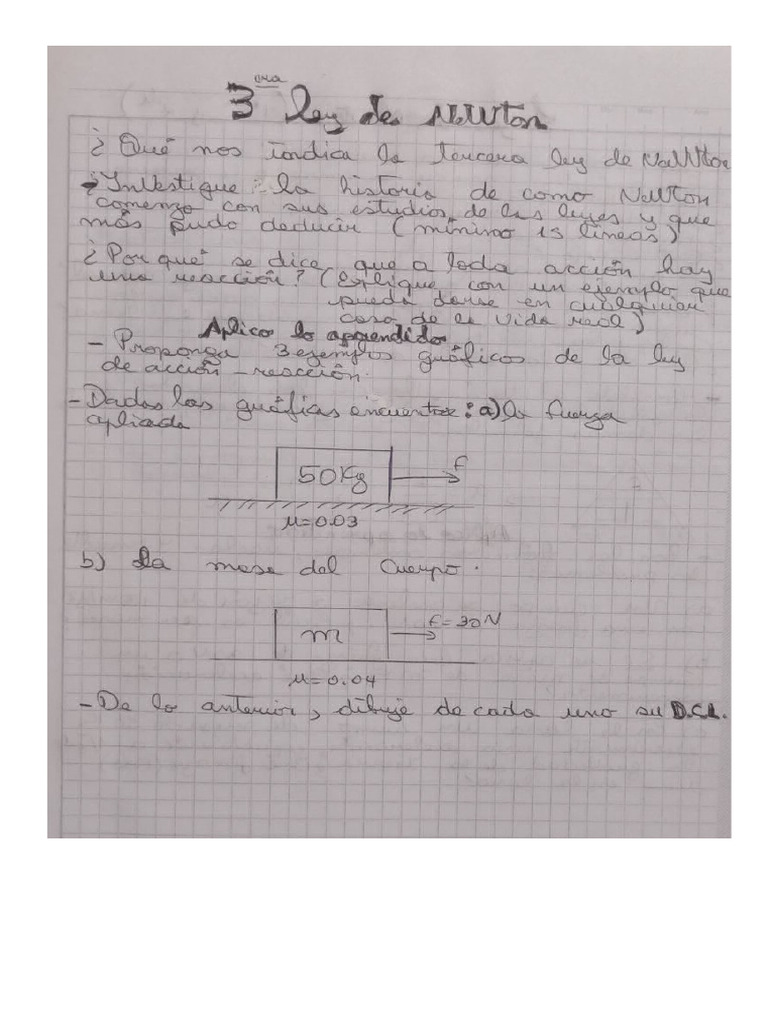 3era ley de Newton
¿Qué nos indica la tercera ley de Newton
¿Investigue: la historia de como Newton
comenzo con sus estudios de las leyes y que
más pudo deducir (mínimo 15 líneas)
¿Por qué se dice, que a toda acción hay
una reacción? (Explique con un ejemplo que
pueda darse en cualquier
caso de la vida real)
Aplico lo aprendido
- Proponga 3 ejemplos gráficos de la ley
de acción - reacción.
- Dadas las gráficas encuentre: a) la fuerza
aplicada
50Kg F
μ=0.03
b) La masa del cuerpo.
m F=30N
μ=0.04
- De lo anterior, dibuje de cada uno su D.C.L.